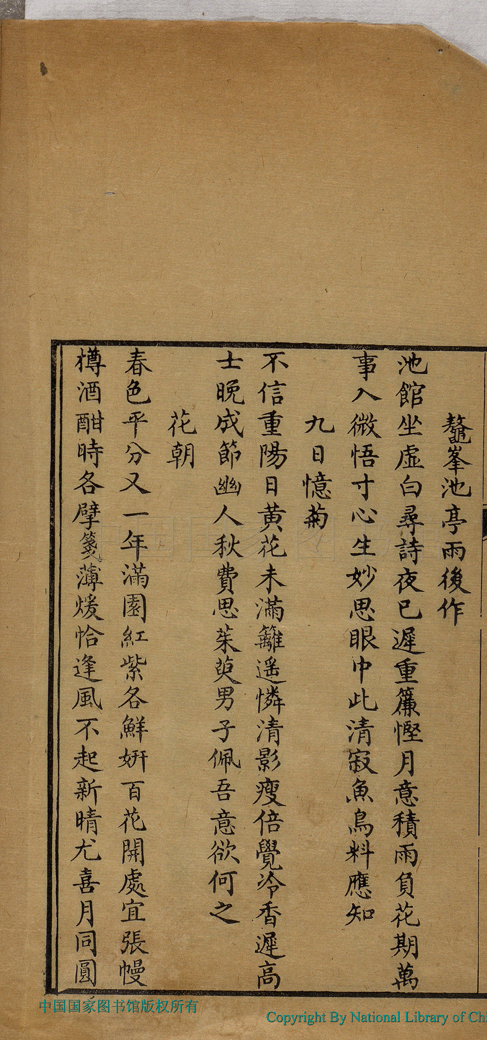 鼇峯池亭雨後作
池館坐虛白尋詩夜已遲重簾慳月意積雨負花期萬
事入微悟寸心生妙思眼中此清寂魚鳥料應知
九日憶菊
不信重陽日黃花未滿籬遥憐清影瘦倍覺冷香遲高
士晚成節幽人秋費思茱萸男子佩吾意欲何之
花朝
春色平分又一年滿園紅紫各鮮妍百花開處宜張幔
樽酒酣時各擘箋薄煖恰逢風不起新晴尤喜月同圓
中国国家图书馆版权所有
Copyright By National Library of Ch